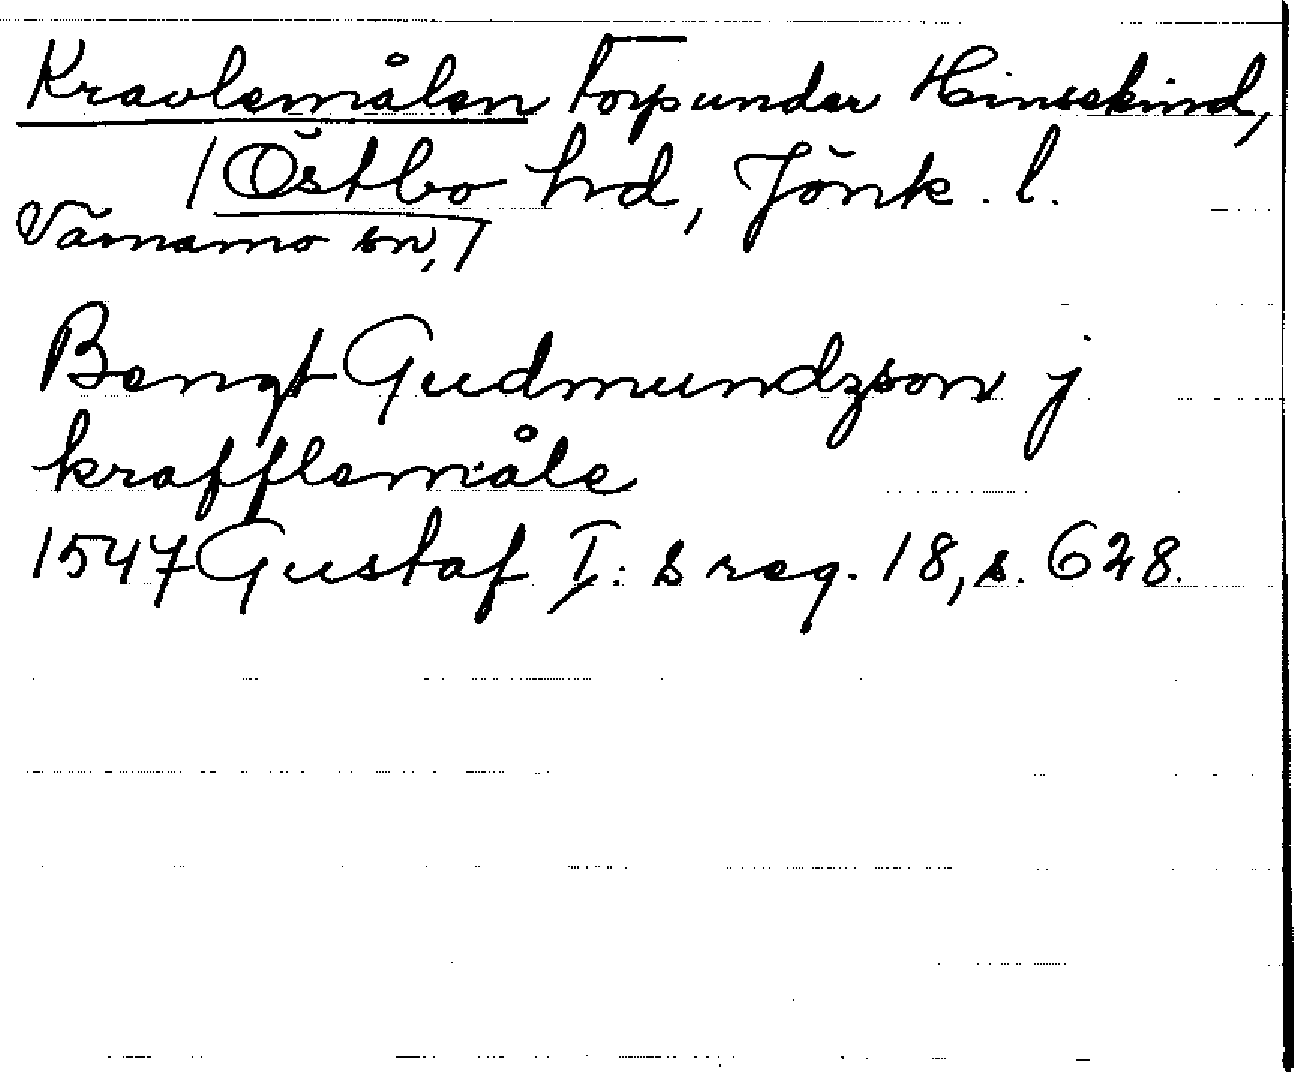 Kravlemålen Torp under Hinsekind,
Östbo hd, Jönk. l.
Värnamo sn,
Bengt Gudmundzson j
krafflemåle
1547 Gustaf I:s reg. 18, s. 628.